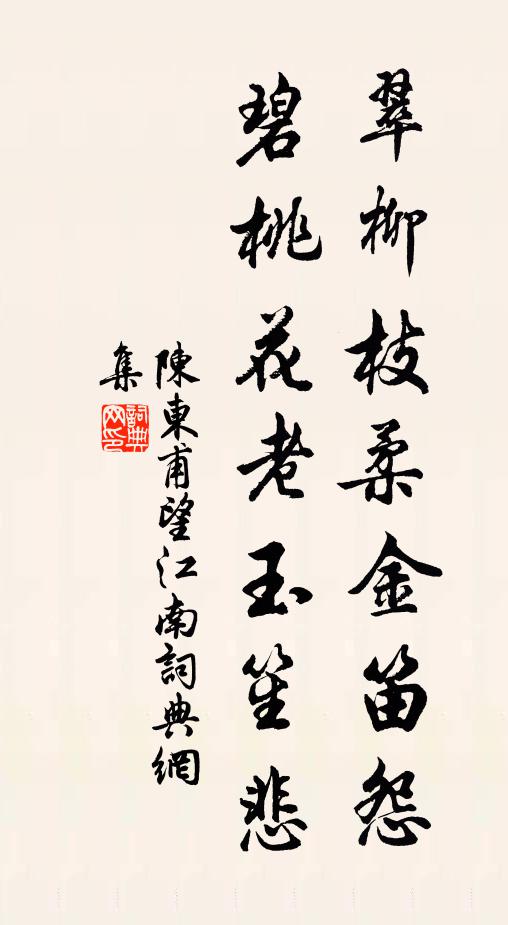 翠柳枝柔金笛怨
碧桃花老玉笙悲
陳東甫望江南詞典網
集
詞典
网印